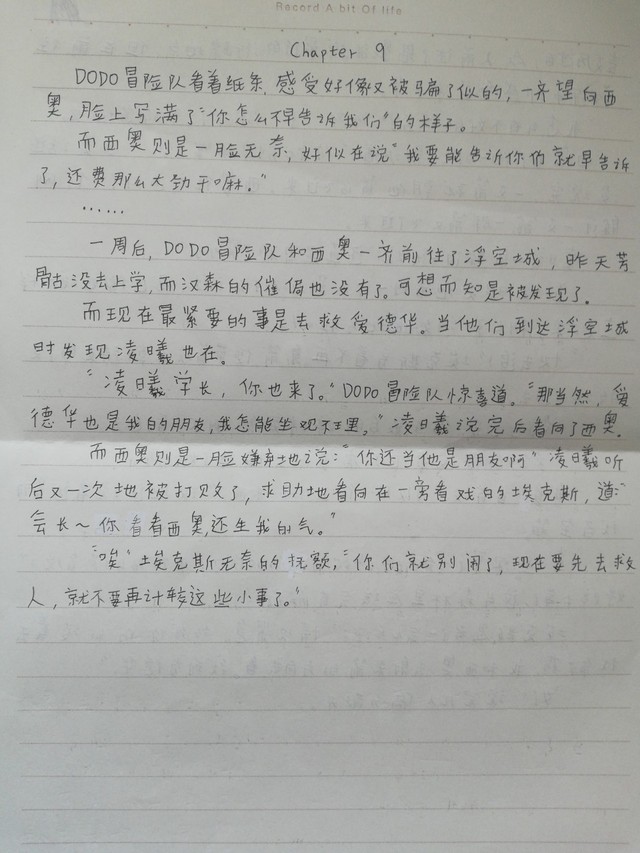 Record A bit Of life
Chapter 9
DODO冒险队看着纸条,感受好像又被骗了似的,一齐望向西
奥,脸上写满了“你怎么不早告诉我们”的样子。
而西奥则是一脸无奈,好似在说“我要能告诉你们就早告诉
了,还费那么大劲干嘛。”
……
一周后,DODO冒险队和西奥一齐前往了浮空城,昨天芳
骷没去上学,而汉森的催倔也没有了。可想而知是被发现了。
而现在最紧要的事是去救爱德华。当他们到达浮空城
时发现凌曦也在。
“凌曦学长,你也来了。”DODO冒险队惊喜道。“那当然,爱
德华也是我的朋友,我怎能坐观不理。”凌曦说完后看向了西奥。
而西奥则是一脸嫌弃地说:“你还当他是朋友啊”凌曦听
后又一次地被打败了,求助地看向在一旁看戏的埃克斯,道:“
会长~你看看西奥,还生我的气。”
“唉”埃克斯无奈的抚额,“你们就别闹了,现在要先去救
人,就不要再计较这些小事了。”